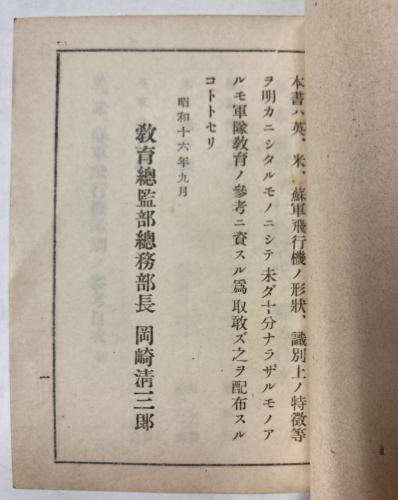 本書ハ英、米、蘇軍飛行機ノ形狀、識別上ノ特徵等
ヲ明カニシタルモノニシテ未ダ十分ナラザルモノア
ルモ軍隊敎育ノ參考ニ資スル爲取敢ズ之ヲ配布スル
コトトセリ
昭和十六年九月
敎育總監部總務部長 岡崎淸三郞
一